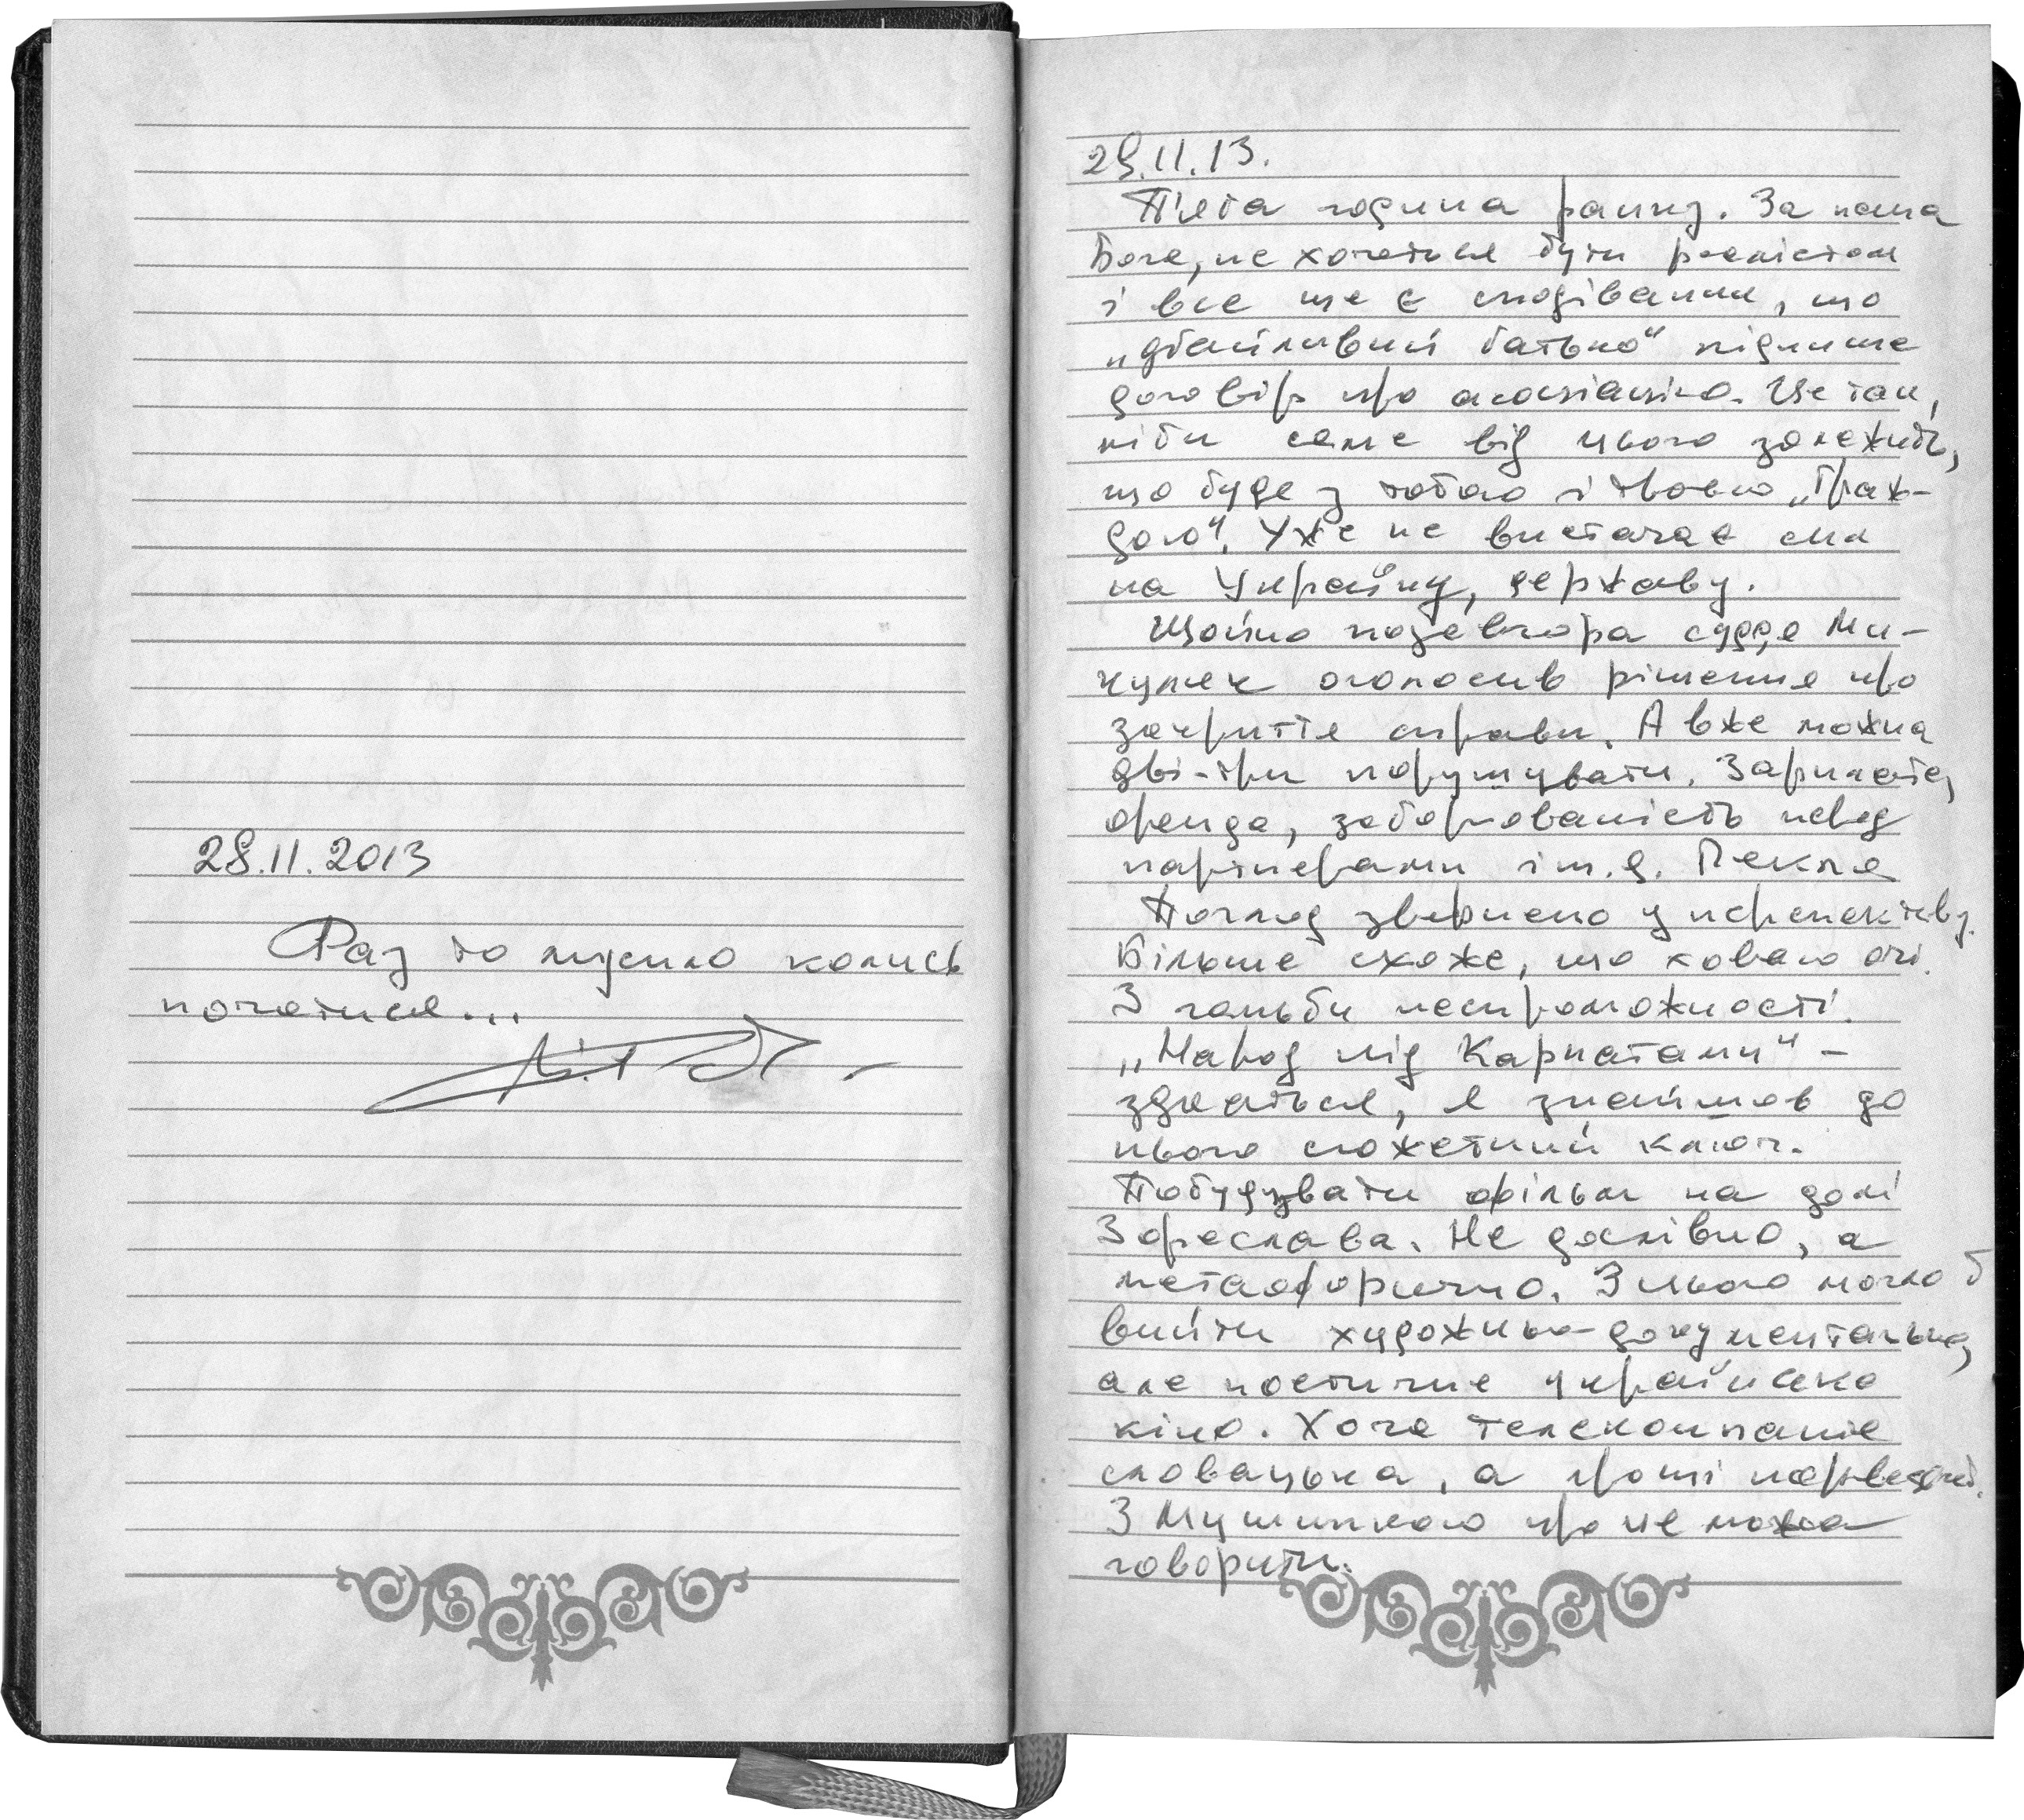 28.11.2013
Раз то мусило колись
початися...
29.11.13.
П'ята година ранку. За вікна
Боже, не хочеться бути реалістом
і все ще є сподівання, що
„дбайливий батько" підпише
договір про асоціацію. Це так,
ніби саме від цього залежить,
що буде з тобою і твоєю „Граж-
дою". Уже не вистачає сил
на Україну, державу.
Щойно позавчора суддя Ми-
куляк оголосив рішення про
закриття справи. А вже можна
дві-три порушувати. Зарплата,
оренда, заборгованість перед
партнерами і т.д. Пекло
Погляд звернено у перспективу.
Більше схоже, що ховаю очі.
З ганьби неспроможності.
„Народ під Карпатами" –
здається, я знайшов до
нього сюжетний ключ.
Побудувати фільм на долі
Зореслава. Не дослівно, а
метафорично. З нього могло б
вийти художньо-документальне,
але поетичне українське
кіно. Хоча телекомпанія
словацька, а гроші норвезькі.
З Мушинкою про це можна
говорити.